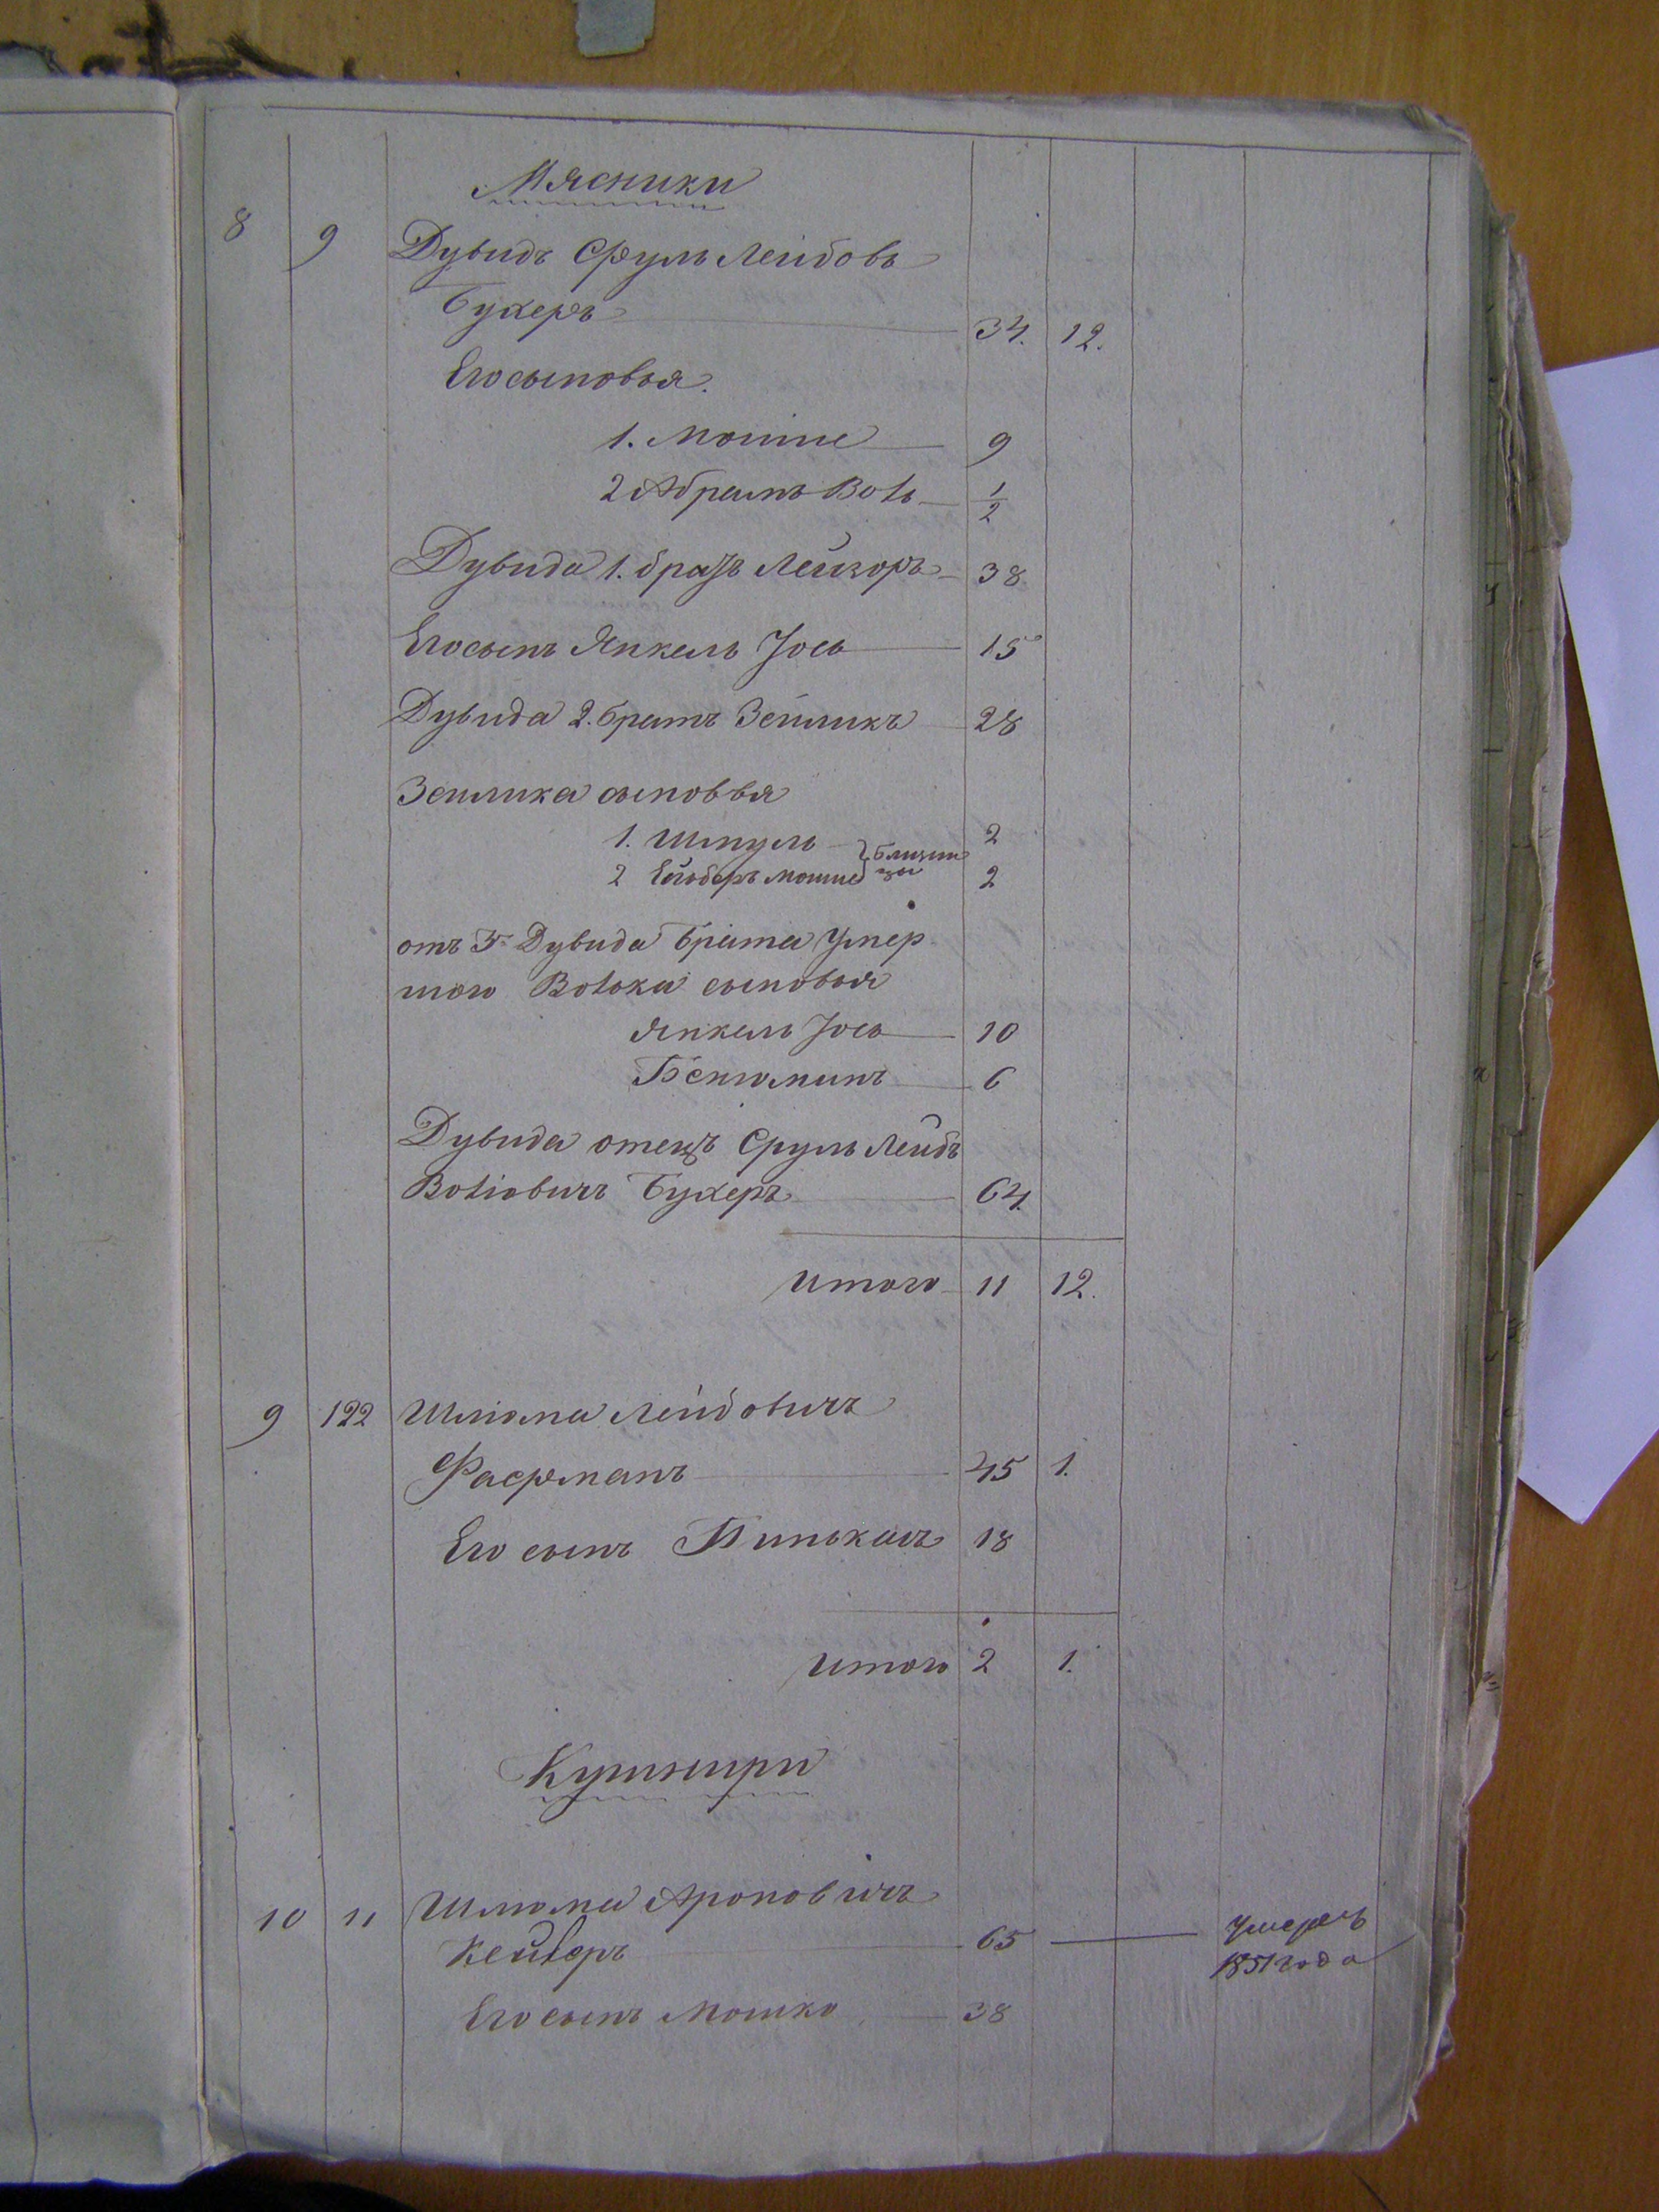 Мясники
8 9 Дувидъ Сруль Лейбовъ
Бухеръ 34. 12.
Его сыновья.
1. Мошие 9
2 Абрамъ Волъ 1/2
Дувида 1. братъ Лейзоръ 38
Его сынъ Янкель Іось 15
Дувида 2. братъ Зейликъ 28
Зейлика сыновья
1. Шмуль 2
2 мошие 2
близнецы
отъ 3 Дувида брата Умер
шого Волька сыновья
Янкель Іось 10
Беньюминъ 6
Дувида отецъ Сруль Лейбъ
Вольовичъ Бухеръ 64.
Итого 11 12.
9 122 Шлиома Лейбовичъ
Фаерманъ 45 1.
Его сынъ Пинькасъ 18
Итого 2 1.
Кушниры
10 11 Шлиома Ароновичъ
65 Умеръ
1851 года
Его сынъ Мошко 38